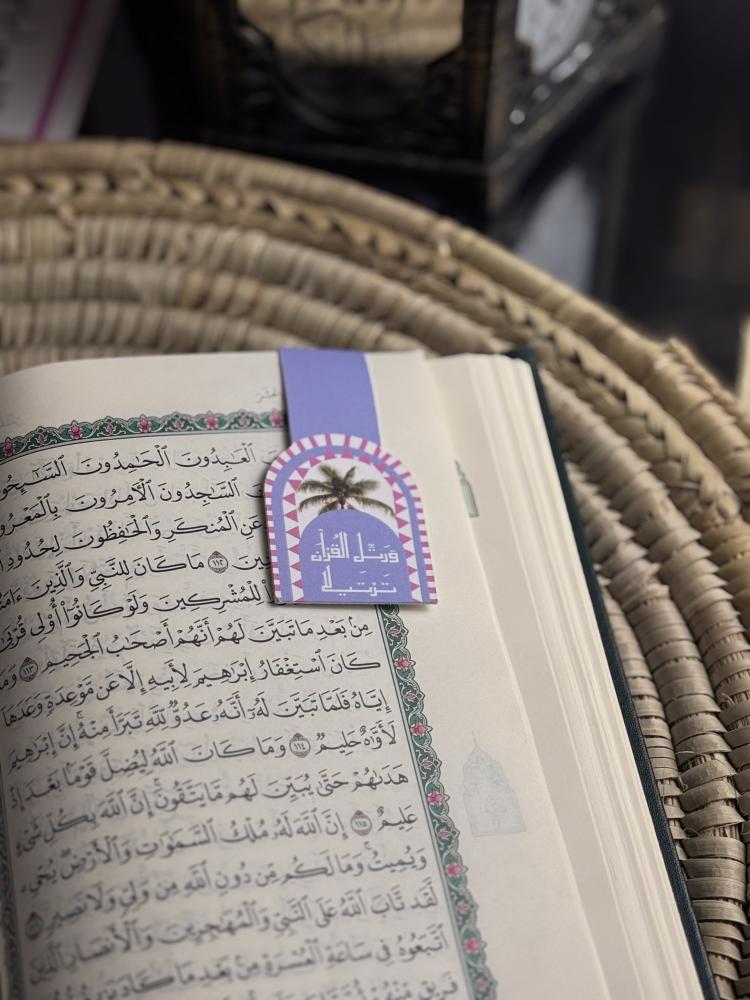 العَٰبِدُونَ الْحَٰمِدُونَ السَّٰٓئِحُونَ
السَّٰجِدُونَ الْآمِرُونَ بِالْمَعْرُوفِ
عَنِ الْمُنكَرِ وَالْحَٰفِظُونَ لِحُدُودِ
١١٢ مَا كَانَ لِلنَّبِيِّ وَالَّذِينَ ءَامَنُوٓا
لِلْمُشْرِكِينَ وَلَوْ كَانُوٓا أُو۟لِي قُرْبَىٰ
مِنۢ بَعْدِ مَا تَبَيَّنَ لَهُمْ أَنَّهُمْ أَصْحَٰبُ الْجَحِيمِ ١١٣ وَمَا
كَانَ اسْتِغْفَارُ إِبْرَٰهِيمَ لِأَبِيهِ إِلَّا عَن مَّوْعِدَةٍ وَعَدَهَآ
إِيَّاهُ فَلَمَّا تَبَيَّنَ لَهُۥٓ أَنَّهُۥ عَدُوٌّ لِّلَّهِ تَبَرَّأَ مِنْهُ ۚ إِنَّ إِبْرَٰهِيمَ
لَأَوَّٰهٌ حَلِيمٌ ١١٤ وَمَا كَانَ اللَّهُ لِيُضِلَّ قَوْمًۢا بَعْدَ إِذْ
هَدَىٰهُمْ حَتَّىٰ يُبَيِّنَ لَهُم مَّا يَتَّقُونَ ۚ إِنَّ اللَّهَ بِكُلِّ شَيْءٍ
عَلِيمٌ ١١٥ إِنَّ اللَّهَ لَهُۥ مُلْكُ السَّمَٰوَٰتِ وَالْأَرْضِ ۖ يُحْيِۦ
وَيُمِيتُ ۚ وَمَا لَكُم مِّن دُونِ اللَّهِ مِن وَلِيٍّ وَلَا نَصِيرٍ ١١٦
لَّقَد تَّابَ اللَّهُ عَلَى النَّبِيِّ وَالْمُهَٰجِرِينَ وَالْأَنصَارِ الَّذِينَ
اتَّبَعُوهُ فِي سَاعَةِ الْعُسْرَةِ مِنۢ بَعْدِ مَا كَادَ يَزِيغُ
فَرِيقٍ مِّنْهُمْ
ورتل القرآن
ترتيلا